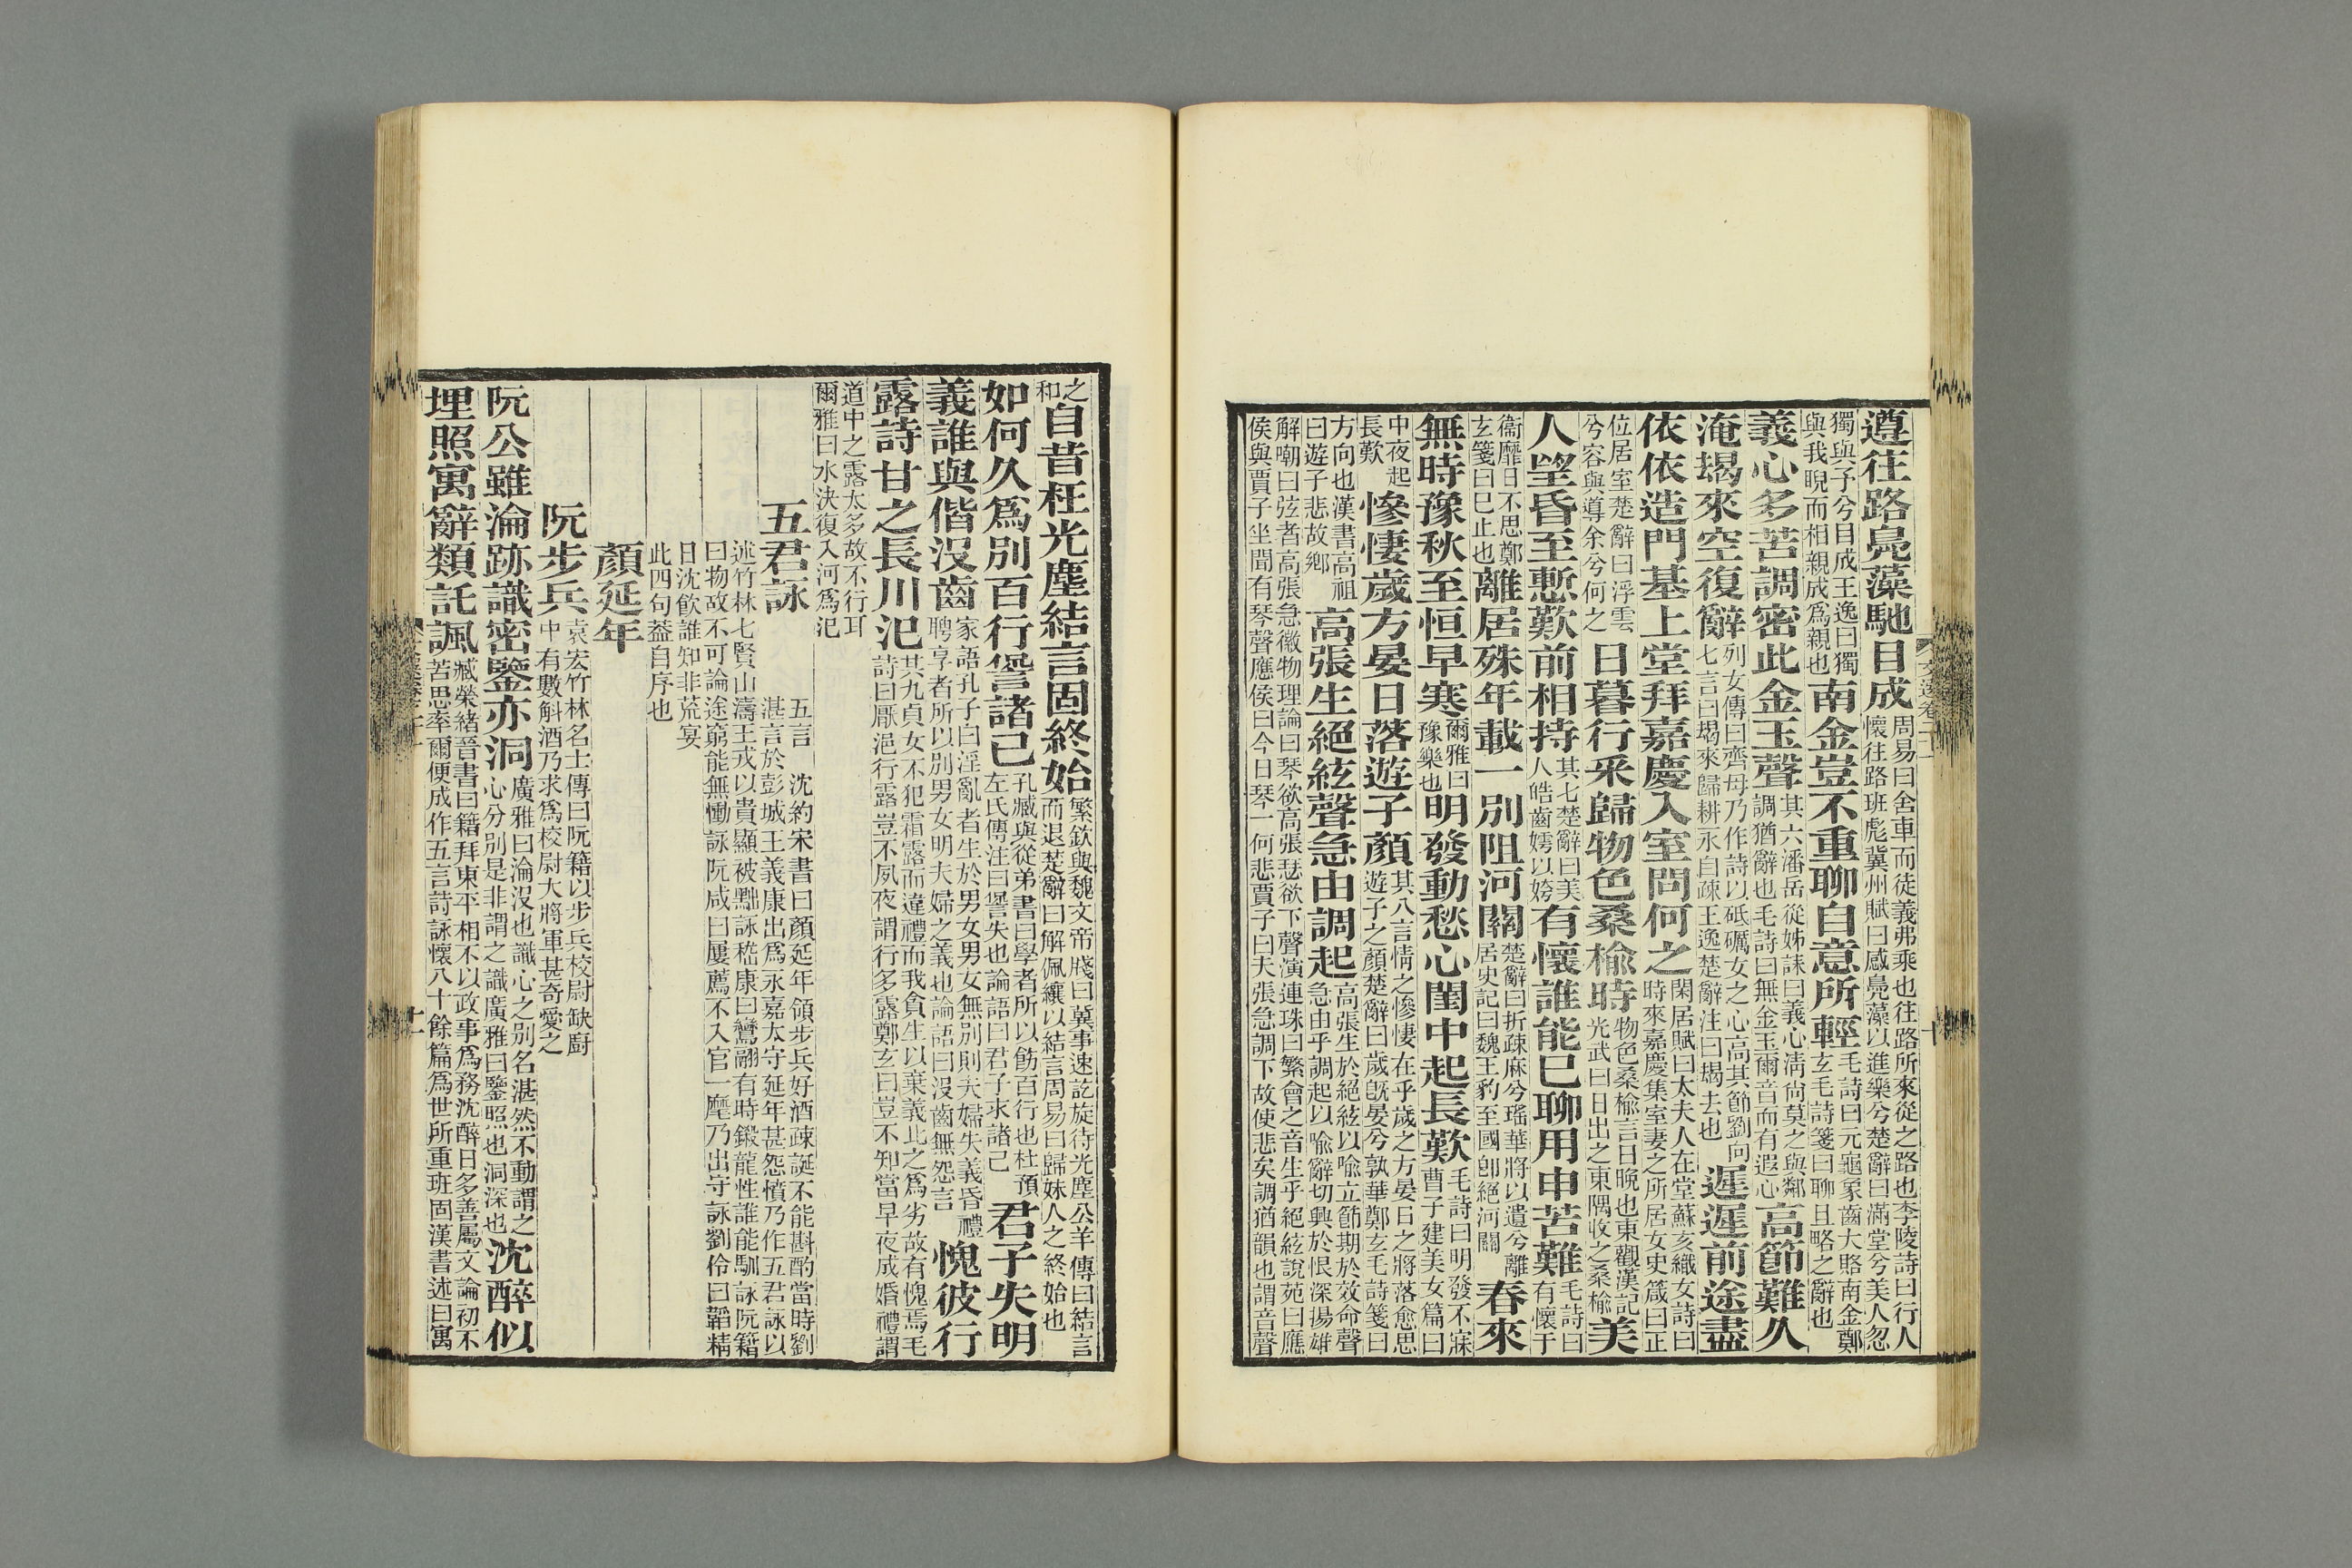 遵往路鳧藻馳目成周易曰舍車而徒義弗乘也往路所來從之路也李陵詩曰行人懷往路班彪冀州賦曰感鳧藻以進樂兮楚辭曰滿堂兮美人忽
獨與予兮目成王逸曰獨與我睨而相親成爲親也南金豈不重聊自意所輕毛詩曰元龜象齒大賂南金鄭玄毛詩箋曰聊且略之辭也
義心多苦調密此金玉聲其六潘岳從姊誄曰義心清尚莫之與鄰調猶辭也毛詩曰無金玉爾音而有遐心高節難久
淹朅來空復辭列女傳曰齊母乃作詩以砥礪女之心高其節劉向七言曰朅來歸耕永自疎王逸楚辭注曰朅去也遲遲前途盡
依依造門基上堂拜嘉慶入室問何之閑居賦曰太夫人在堂蘇亥織女詩曰時來嘉慶集室妻之所居女史箴曰正
位居室楚辭曰浮雲兮容與導余兮何之日暮行采歸物色桑榆時物色桑榆言日晚也東觀漢記光武曰日出之東隅收之桑榆美
人望昏至慙歎前相持其七楚辭曰美人皓齒嫮以姱有懷誰能已聊用申苦難毛詩曰有懷于
衞靡日不思鄭玄箋曰巳止也離居殊年載一別阻河關楚辭曰折疎麻兮瑤華將以遺兮離居史記曰魏王豹至國卽絕河關春來
無時豫秋至恒早寒爾雅曰豫樂也明發動愁心閨中起長歎毛詩曰明發不寐曹子建美女篇曰
中夜起長歎慘悽歲方晏日落遊子顏其八言情之慘悽在乎歲之方晏日之將落愈思遊子之顏楚辭曰歲旣晏兮孰華鄭玄毛詩箋曰
方向也漢書高祖曰遊子悲故鄉高張生絕絃聲急由調起高張生於絕絃以喻立節期於效命聲急由乎調起以喻辭切興於恨深揚雄
解嘲曰弦者高張急徽物理論曰琴欲高張瑟欲下聲演連珠曰繁會之音生乎絕絃說苑曰應侯與賈子坐聞有琴聲應侯曰今日琴一何悲賈子曰夫張急調下故使悲矣調猶韻也謂音聲
之和自昔枉光塵結言固終始繁欽與魏文帝牋曰冀事速訖旋待光塵公羊傳曰結言而退楚辭曰解佩纕以結言周易曰歸妹人之終始也
如何久爲別百行諐諸己孔臧與從弟書曰學者所以飭百行也杜預左氏傳注曰諐失也論語曰君子求諸己君子失明
義誰與偕沒齒家語孔子曰淫亂者生於男女男女無別則夫婦失義昏禮聘享者所以別男女明夫婦之義也論語曰沒齒無怨言愧彼行
露詩甘之長川汜其九貞女不犯霜露而違禮而我貪生以棄義此之爲劣故有愧焉毛詩曰厭浥行露豈不夙夜謂行多露鄭玄曰豈不知當早夜成婚禮謂
道中之露太多故不行耳爾雅曰水決復入河爲汜
五君詠五言沈約宋書曰顏延年領步兵好酒疎誕不能斟酌當時劉湛言於彭城王義康出爲永嘉太守延年甚怨憤乃作五君詠以
述竹林七賢山濤王戎以貴顯被黜詠嵇康曰鸞翮有時鍛龍性誰能馴詠阮籍曰物故不可論途窮能無慟詠阮咸曰屢薦不入官一麾乃出守詠劉伶曰韜精
日沈飲誰知非荒宴此四句葢自序也
顏延年
阮步兵袁宏竹林名士傳曰阮籍以步兵校尉缺廚中有數斛酒乃求爲校尉大將軍甚奇愛之
阮公雖淪跡識密鑒亦洞廣雅曰淪沒也識心之別名湛然不動謂之心分別是非謂之識廣雅曰鑒照也洞深也沈醉似
埋照寓辭類託諷臧榮緒晉書曰籍拜東平相不以政事爲務沈醉日多善屬文論初不苦思率爾便成作五言詩詠懷八十餘篇爲世所重班固漢書述曰寓